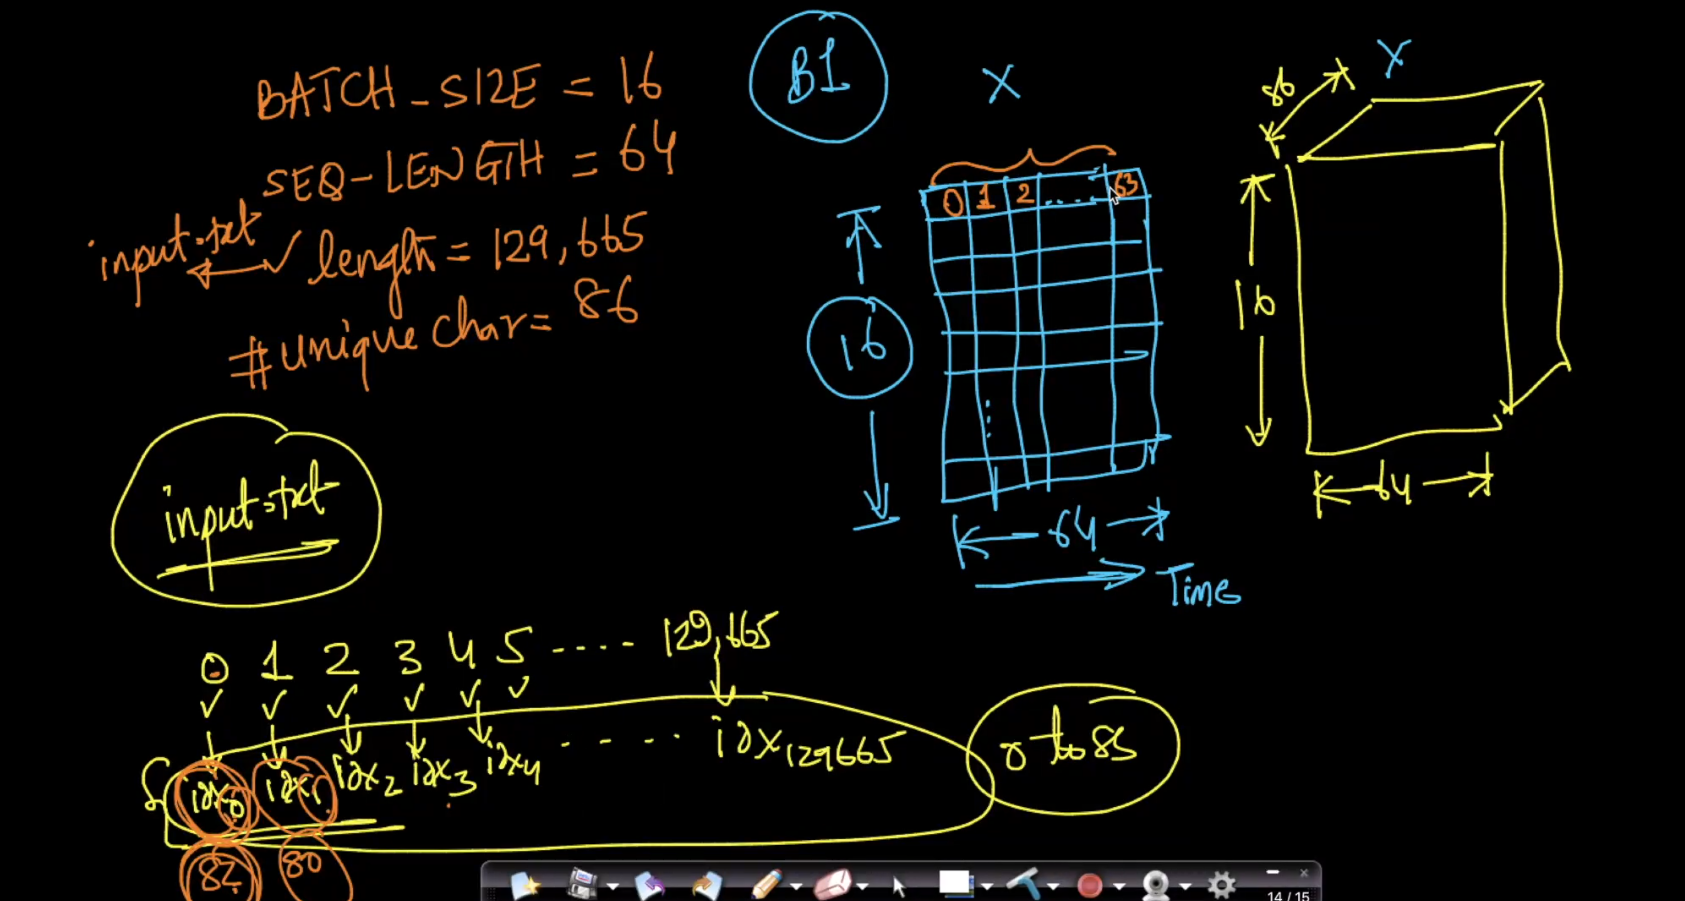 BATCH-SIZE = 16
SEQ-LENGTH = 64
input.txt
length = 129,665
#unique char = 86
input.txt
B1
X
0 1 2 .... 63
16
64
Time
X
86
16
64
0 1 2 3 4 5 .... 129,665
idx0 idx1 idx2 idx3 idx4 ..... idx129665
0 to 85
82 80
14 / 15